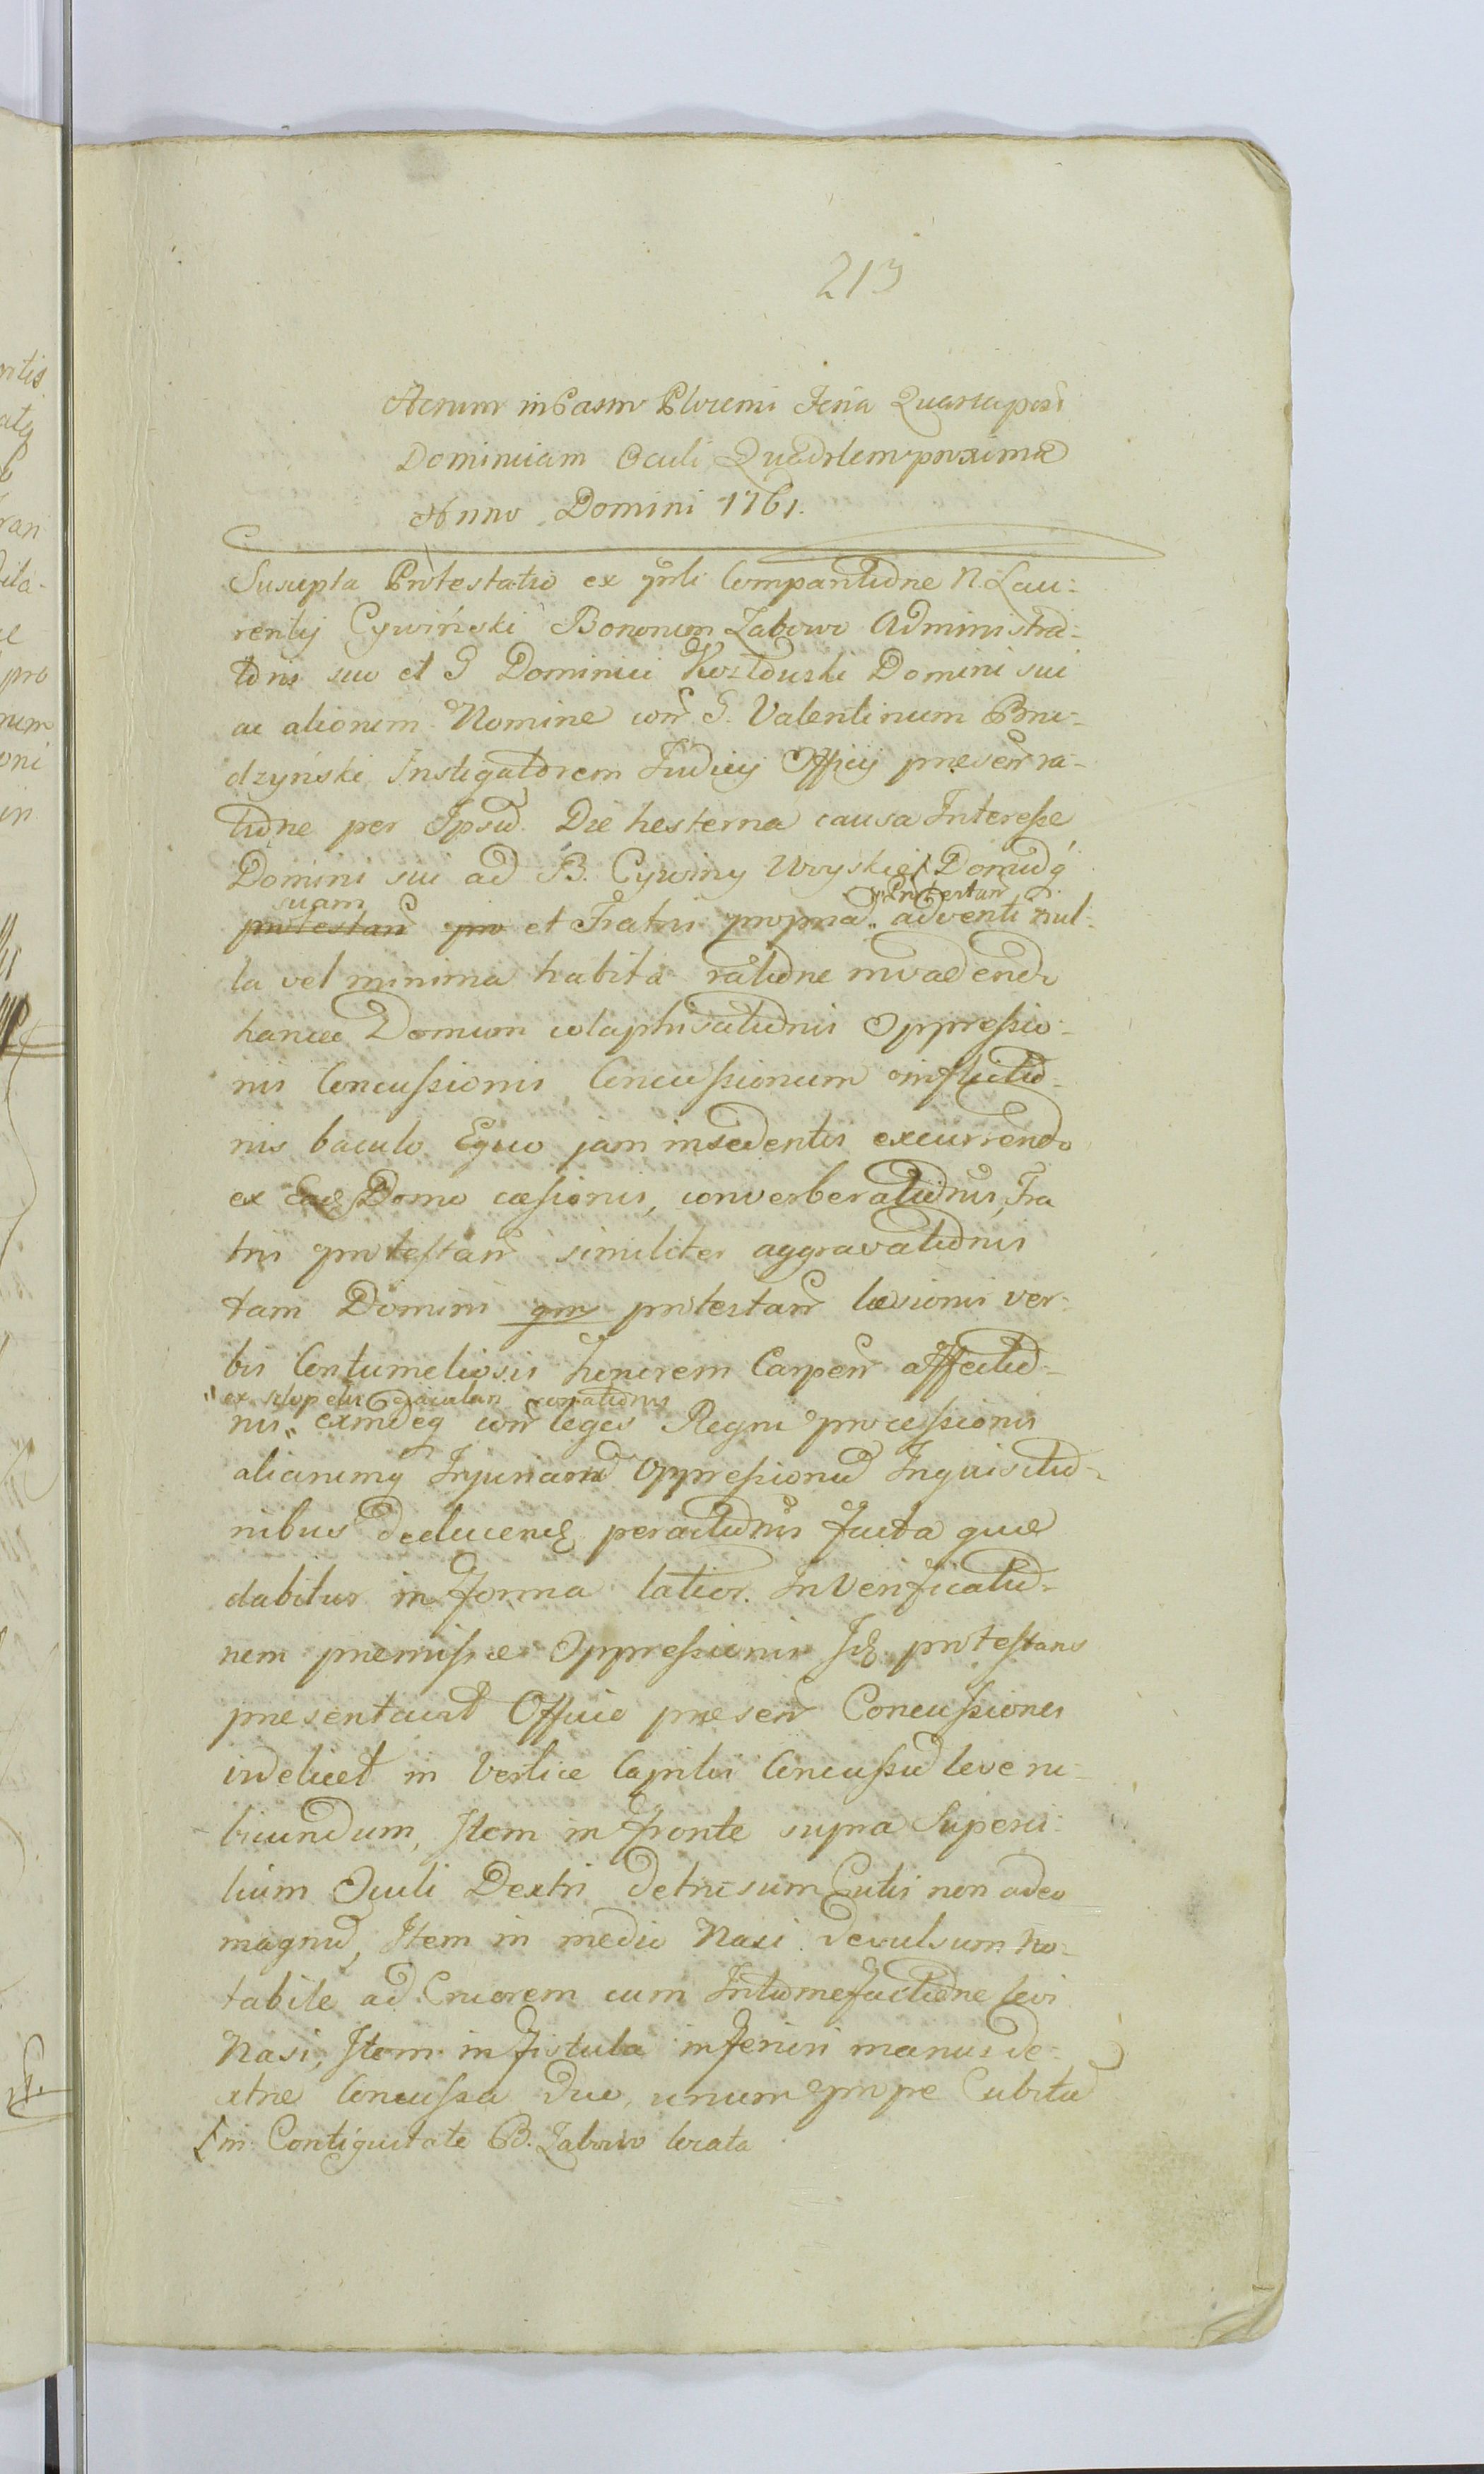 213
Actum in Castro Plocensi Feria Quarta post
Dominicam Oculi Quadrlem proxima
Anno Domini 1761.
Suscepta Protestatio ex prnli Comparitione N. Lau-
rentij Cywiński Bonorum Zabowo Administra-
toris suo et G Dominici Kozłowski Domini sui
ac aliorum Nomine con G. Valentinum Bru-
dzyński Instigatorem Judicij Officij presen ra-
tione per Ipsum Die hesterna causa Interesse
Domini sui ad B. Cywiny Woyskie Domumq
suam " Protestan
protestan pro et Fratris propria " adventi nul-
la vel minima habita ratione invadendi
hancce Domum colaphisationis Oppressio-
nis Concussionis, Concussionum inflictio-
nis baculo Equo jam insedentis excurrendo
ex Eade Domo cæsionis, converberationis, Fra
tris protestan similiter aggravationis
tam Domini qm protestan læsionis ver-
bis Contumeliosis honorem Carpen affectio-
" ex sclopetis ejaculari conationis
nis " eximdeq con leges Regni processionis
aliarumq Injuriarum Oppressionum Inquisitio-
nibus deducend peractionis facta que
dabitur in forma latior. In Verificatio-
nem premissæ Oppressionis Id protestans
presentavit Officio presen Concussiones
videlicet in Vertice Capitis Concussum leve ru-
bicundum, Item in fronte supra Superci-
lium Oculi Dextri detrusum Cutis non adeo
magnum, Item in medio Nasi devulsum no-
tabile ad Cruorem cum Intumefactione levi
Nasi, Item in fistula inferiori manus de-
xtræ Concussa duo, unum prope Cubitum
[in Contiguitate B. Zabowo locata